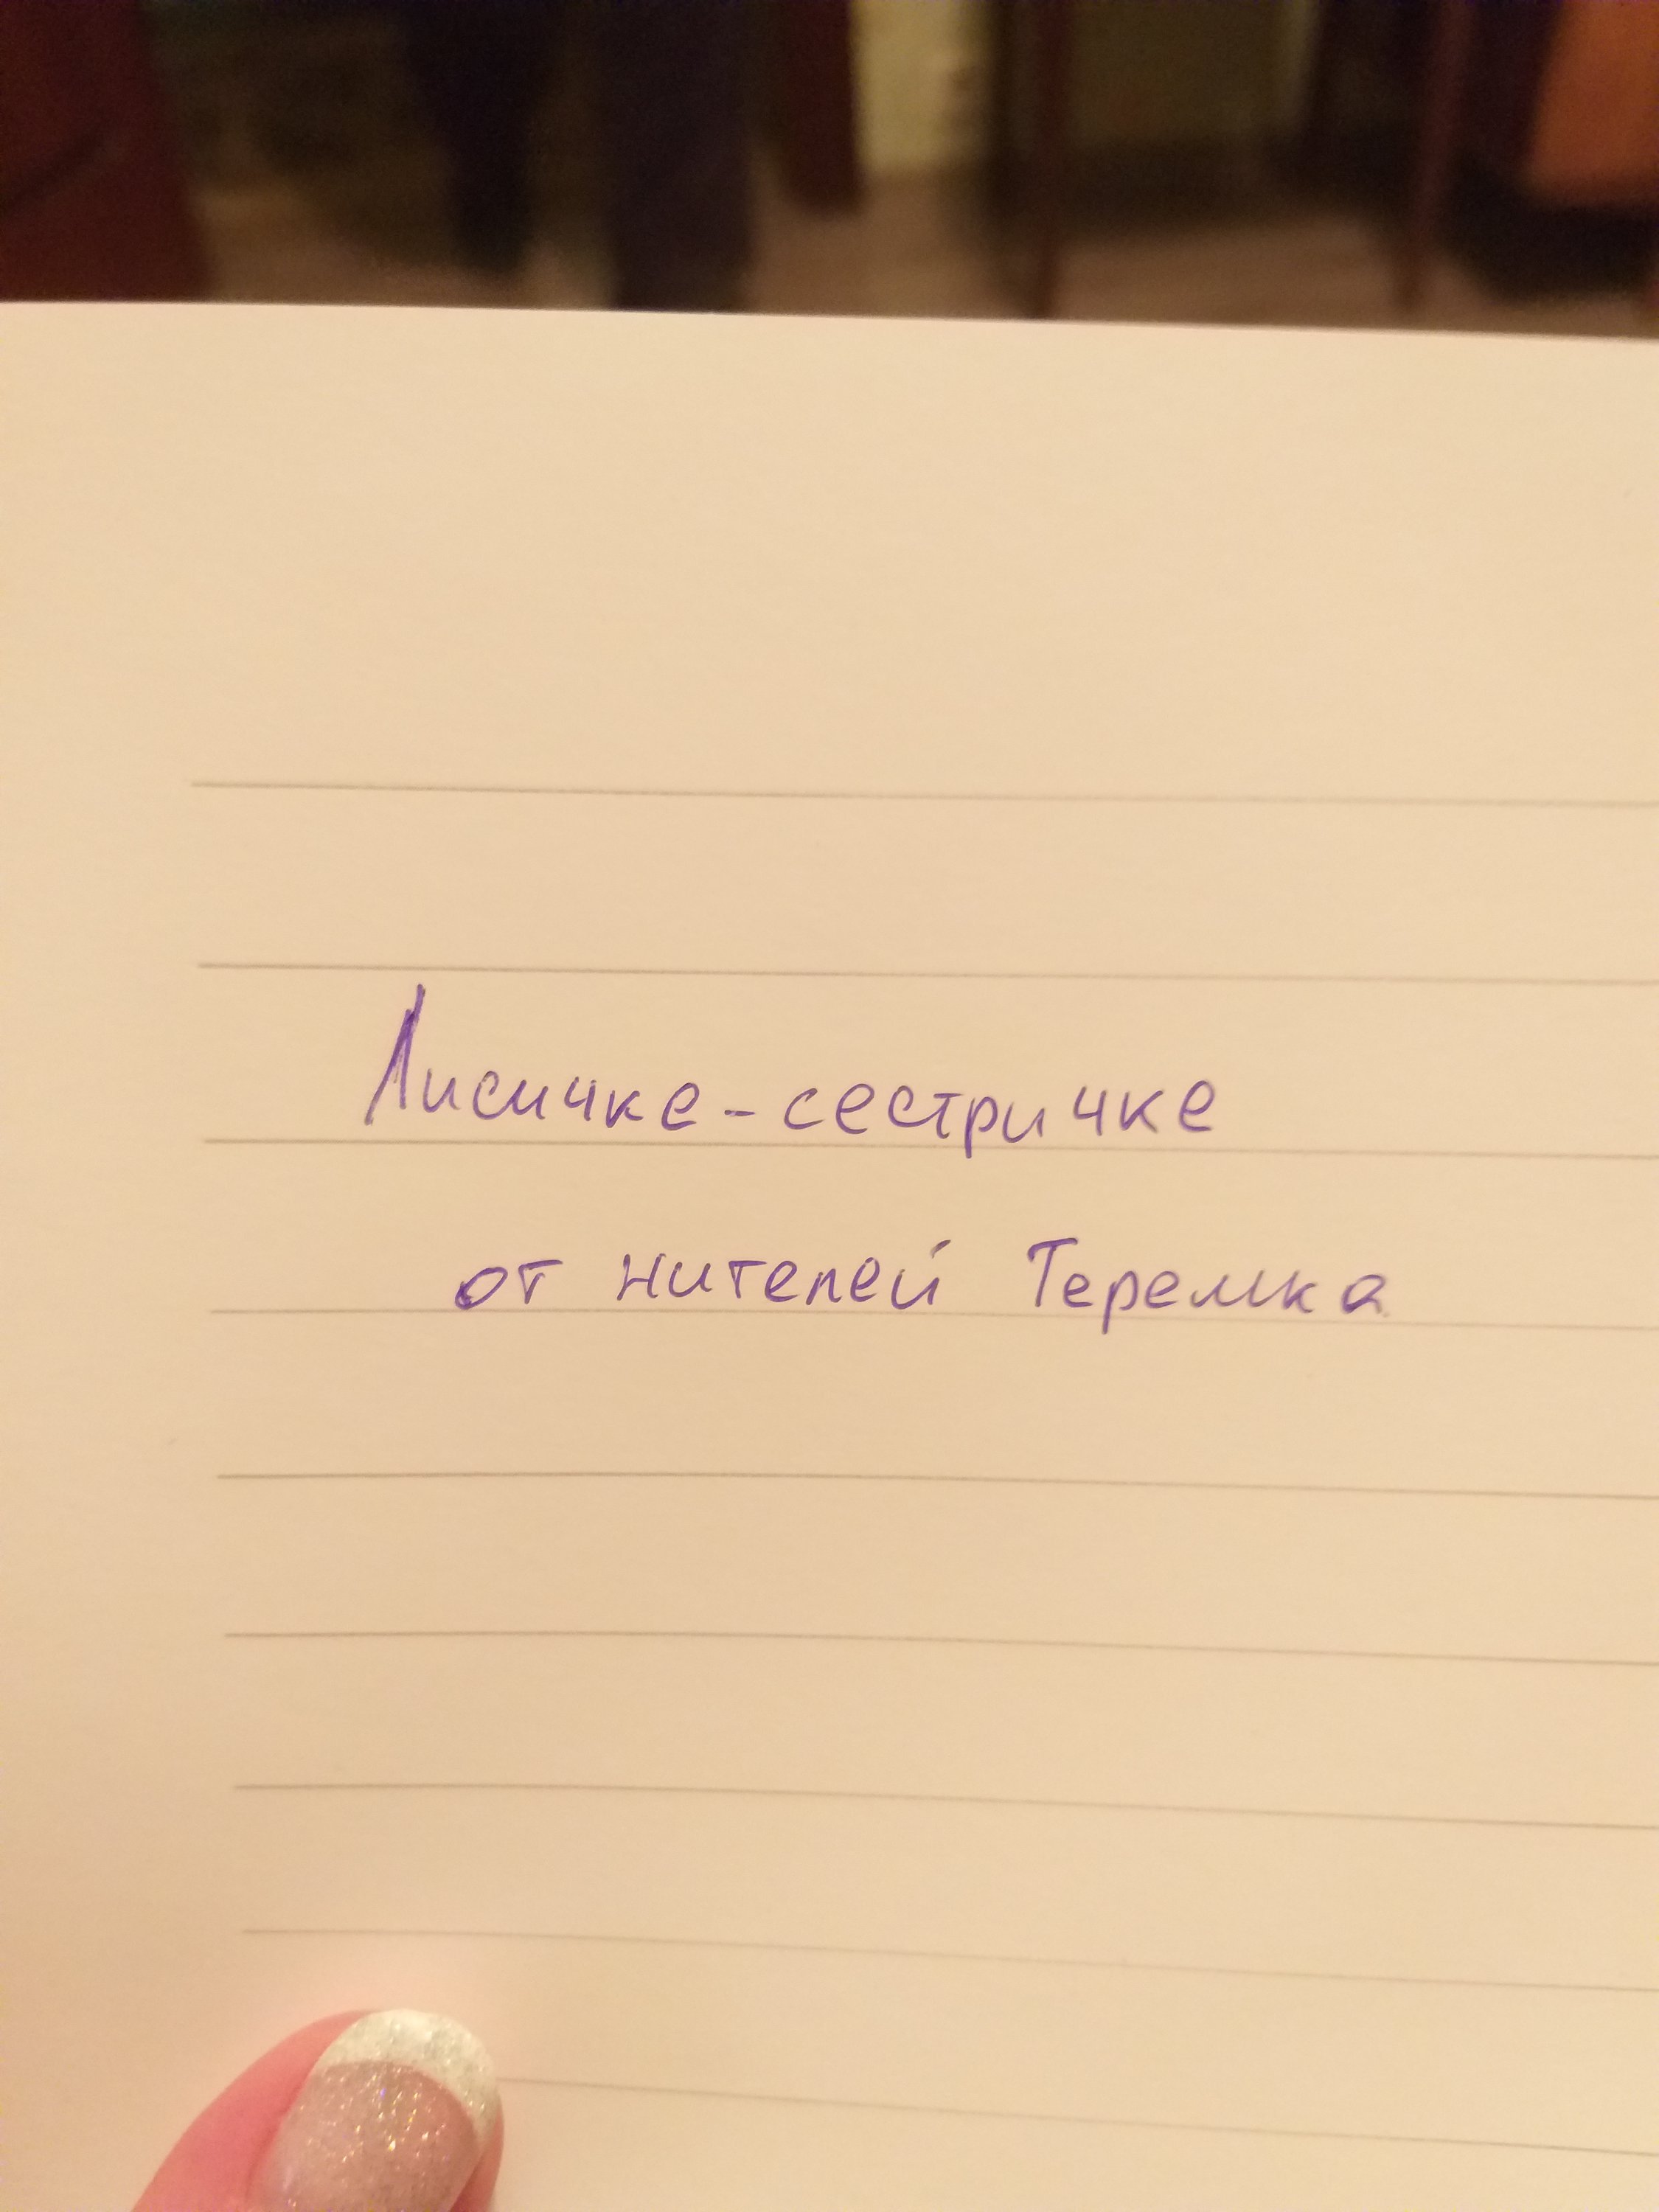 Лисичке-сестричке
от жителей Теремка